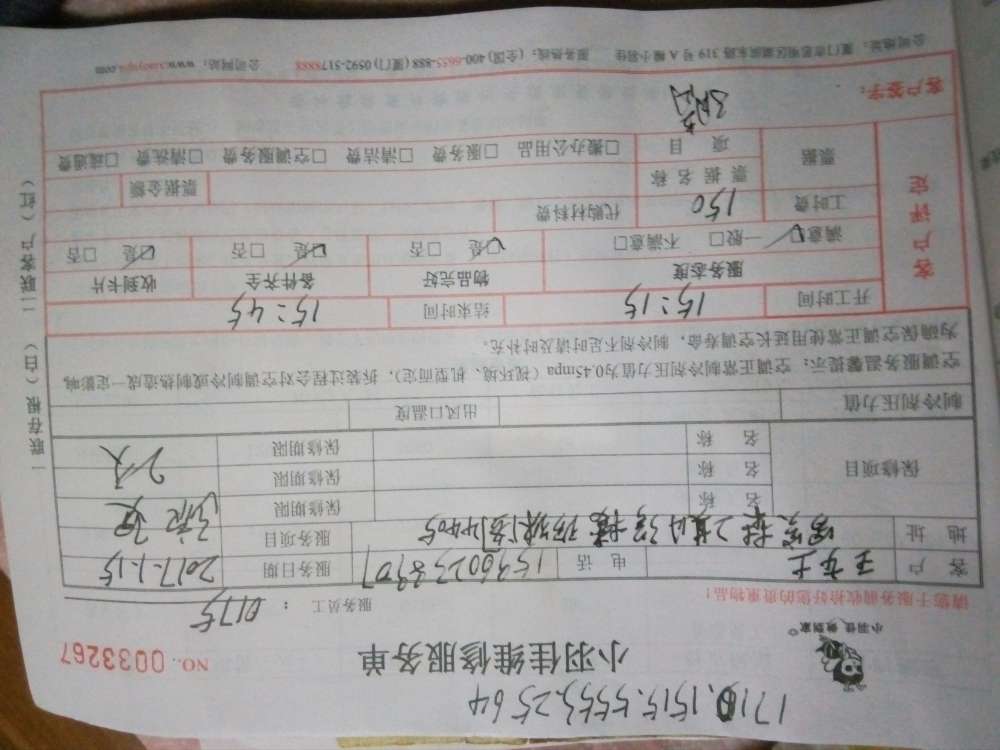 小羽佳维修服务单
小羽佳 做到家
NO. 0033267
服务员工： 0175
请您于服务前收拾好您的贵重物品！
客户 王女士 电话 服务日期 2017-1-15
地址 服务项目
保修项目 名称 保修期限
名称 保修期限
名称 保修期限
制冷剂压力值 出风口温度
空调服务温馨提示：空调正常制冷剂压力值为0.45mpa（视环境、机型而定），拆装过程会对空调制冷或制热造成一定影响，
为确保空调正常使用延长空调寿命，制冷剂不足时请及时补充。
开工时间 15:15 结束时间 15:45
客户评定
服务态度 物品完好 备件齐全 收到卡片
满意☑ 一般□ 不满意□ ☑是 □否 ☑是 □否 ☑是 □否
工时费 150 代购材料费
票据 票据名称 票据金额
项目 □搬办公用品 □服务费 □空调服务费 □清洁费 □清洗费 □疏通费
客户签字：
服务热线：（全国）400-6655-888（厦门）0592-5178888 公司网站：
一联存根（白） 二联客户（红）